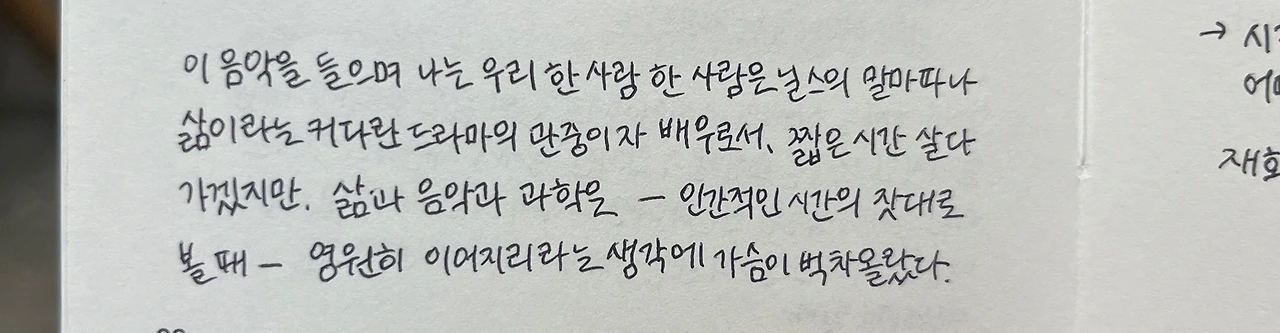 이 음악을 들으며 나는 우리 한 사람 한 사람은 닐스의 말마따나
삶이라는 커다란 드라마의 관중이자 배우로서, 짧은 시간 살다
가겠지만, 삶과 음악과 과학은 — 인간적인 시간의 잣대로
볼 때 — 영원히 이어지리라는 생각에 가슴이 벅차올랐다.
→